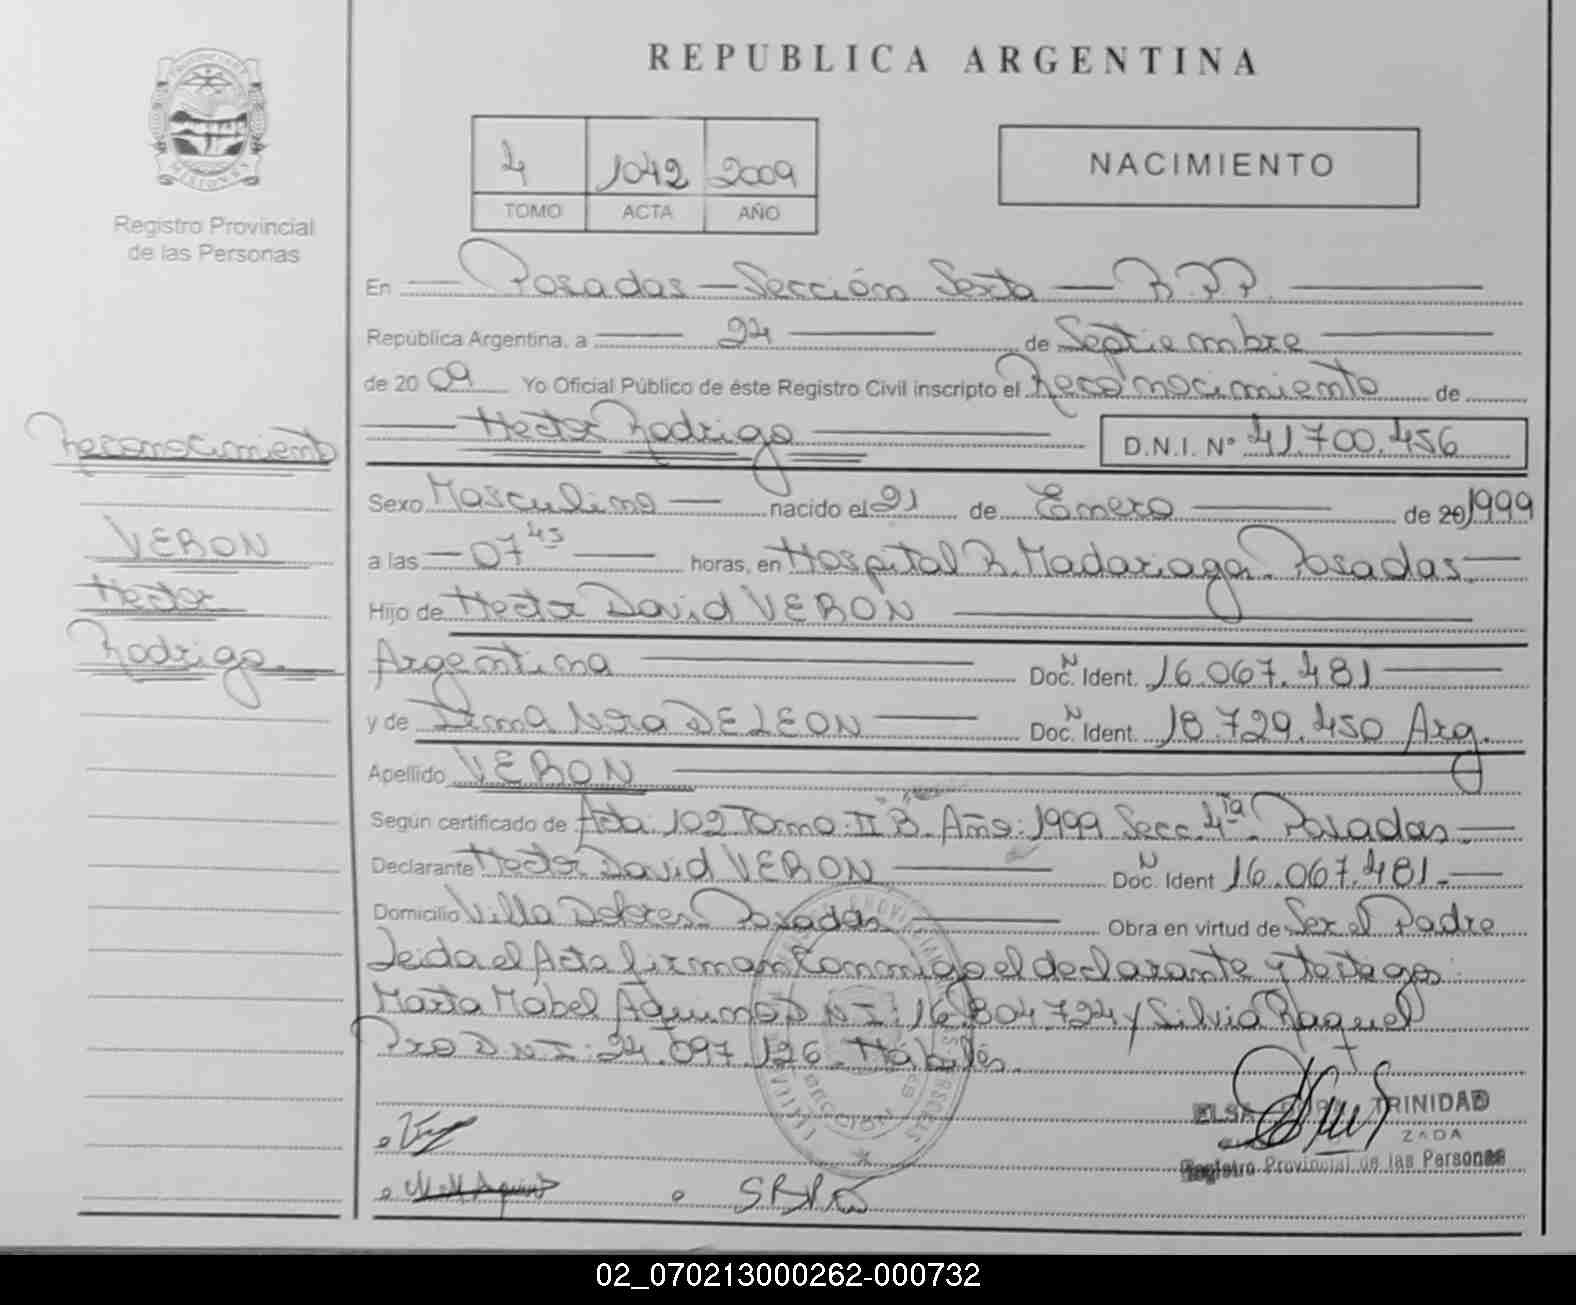 REPUBLICA ARGENTINA
4 1042 2009
TOMO ACTA AÑO
NACIMIENTO
MISIONES
Registro Provincial
de las Personas
En Posadas - Sección Sexta - R.P.P.
República Argentina, a 24 de Septiembre
de 2009 Yo Oficial Público de éste Registro Civil inscripto el Reconocimiento de
Hector Rodrigo D.N.I. Nº 41.700.456
Sexo Masculino nacido el 21 de Enero de 20 1999
a las 07 45 horas, en Hospital R. Madariaga Posadas
Hijo de Hector David VERON
Argentina Doc. N Ident. 16.067.481
y de DE LEON Doc. N Ident. 18.729.450 Arg.
Apellido VERON
Según certificado de Acta 102 Tomo II B. Año: 1999 Secc. 4ta Posadas
Declarante Hector David VERON Doc. N Ident 16.067.481.
Domicilio Villa Dolores Posadas Obra en virtud de Ser el Padre
Leida el Acta firman Conmigo el declarante y testigos:
Marta Mabel Aquino D N I: 16.804.724 y Silvia Raquel
D N I: 24.097.126. Hábiles.
Reconocimiento
VERON
Hector
Rodrigo
ELSA TRINIDAD
Registro Provincial de las Personas
02_070213000262-000732